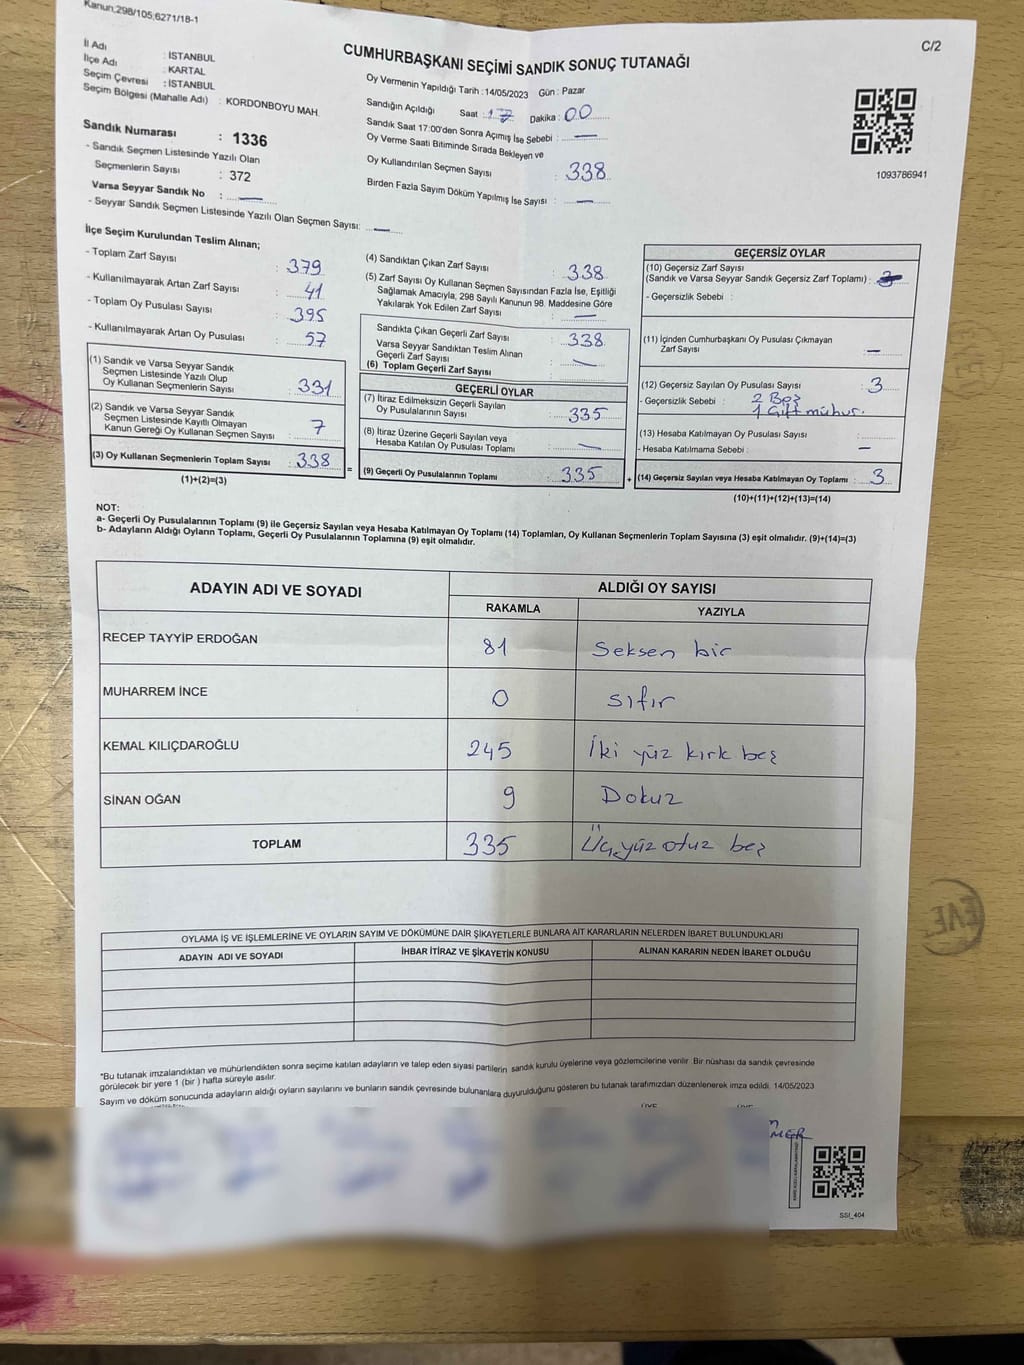 Kanun;298/105;6271/18-1
C/2
CUMHURBAŞKANI SEÇİMİ SANDIK SONUÇ TUTANAĞI
İl Adı : İSTANBUL
İlçe Adı : KARTAL
Seçim Çevresi : İSTANBUL
Seçim Bölgesi (Mahalle Adı) : KORDONBOYU MAH.
Sandık Numarası : 1336
- Sandık Seçmen Listesinde Yazılı Olan
Seçmenlerin Sayısı : 372
Varsa Seyyar Sandık No : —
- Seyyar Sandık Seçmen Listesinde Yazılı Olan Seçmen Sayısı: —
Oy Vermenin Yapıldığı Tarih : 14/05/2023 Gün : Pazar
Sandığın Açıldığı Saat : 17 Dakika : 00
Sandık Saat 17:00'den Sonra Açımış İse Sebebi : —
Oy Verme Saati Bitiminde Sırada Bekleyen ve
Oy Kullandırılan Seçmen Sayısı : 338
Birden Fazla Sayım Döküm Yapılmış İse Sayısı : —
1093786941
İlçe Seçim Kurulundan Teslim Alınan;
- Toplam Zarf Sayısı : 379
- Kullanılmayarak Artan Zarf Sayısı : 41
- Toplam Oy Pusulası Sayısı : 395
- Kullanılmayarak Artan Oy Pusulası : 57
(1) Sandık ve Varsa Seyyar Sandık
Seçmen Listesinde Yazılı Olup
Oy Kullanan Seçmenlerin Sayısı : 331
(2) Sandık ve Varsa Seyyar Sandık
Seçmen Listesinde Kayıtlı Olmayan
Kanun Gereği Oy Kullanan Seçmen Sayısı : 7
(3) Oy Kullanan Seçmenlerin Toplam Sayısı : 338
(1)+(2)=(3)
=
(4) Sandıktan Çıkan Zarf Sayısı : 338
(5) Zarf Sayısı Oy Kullanan Seçmen Sayısından Fazla İse, Eşitliği
Sağlamak Amacıyla, 298 Sayılı Kanunun 98. Maddesine Göre
Yakılarak Yok Edilen Zarf Sayısı : —
Sandıkta Çıkan Geçerli Zarf Sayısı : 338
Varsa Seyyar Sandıktan Teslim Alınan
Geçerli Zarf Sayısı : —
(6) Toplam Geçerli Zarf Sayısı :
GEÇERLİ OYLAR
(7) İtiraz Edilmeksizin Geçerli Sayılan
Oy Pusulalarının Sayısı : 335
(8) İtiraz Üzerine Geçerli Sayılan veya
Hesaba Katılan Oy Pusulası Toplamı : —
(9) Geçerli Oy Pusulalarının Toplamı : 335
+
GEÇERSİZ OYLAR
(10) Geçersiz Zarf Sayısı
(Sandık ve Varsa Seyyar Sandık Geçersiz Zarf Toplamı) :
- Geçersizlik Sebebi :
(11) İçinden Cumhurbaşkanı Oy Pusulası Çıkmayan
Zarf Sayısı : —
(12) Geçersiz Sayılan Oy Pusulası Sayısı : 3
- Geçersizlik Sebebi : 2 Boş
1 Çift mühür.
(13) Hesaba Katılmayan Oy Pusulası Sayısı :
- Hesaba Katılmama Sebebi : —
(14) Geçersiz Sayılan veya Hesaba Katılmayan Oy Toplamı : 3
(10)+(11)+(12)+(13)=(14)
NOT:
a- Geçerli Oy Pusulalarının Toplamı (9) ile Geçersiz Sayılan veya Hesaba Katılmayan Oy Toplamı (14) Toplamları, Oy Kullanan Seçmenlerin Toplam Sayısına (3) eşit olmalıdır. (9)+(14)=(3)
b- Adayların Aldığı Oyların Toplamı, Geçerli Oy Pusulalarının Toplamına (9) eşit olmalıdır.
ADAYIN ADI VE SOYADI ALDIĞI OY SAYISI
RAKAMLA YAZIYLA
RECEP TAYYİP ERDOĞAN 81 Seksen bir
MUHARREM İNCE 0 sıfır
KEMAL KILIÇDAROĞLU 245 İki yüz kırk beş
SİNAN OĞAN 9 Dokuz
TOPLAM 335 Üç yüz otuz beş
OYLAMA İŞ VE İŞLEMLERİNE VE OYLARIN SAYIM VE DÖKÜMÜNE DAİR ŞİKAYETLERLE BUNLARA AİT KARARLARIN NELERDEN İBARET BULUNDUKLARI
ADAYIN ADI VE SOYADI İHBAR İTİRAZ VE ŞİKAYETİN KONUSU ALINAN KARARIN NEDEN İBARET OLDUĞU
*Bu tutanak imzalandıktan ve mühürlendikten sonra seçime katılan adayların ve talep eden siyasi partilerin sandık kurulu üyelerine veya gözlemcilerine verilir. Bir nüshası da sandık çevresinde
görülecek bir yere 1 (bir) hafta süreyle asılır.
Sayım ve döküm sonucunda adayların aldığı oyların sayılarını ve bunların sandık çevresinde bulunanlara duyurulduğunu gösteren bu tutanak tarafımızdan düzenlenerek imza edildi. 14/05/2023
SSI_404